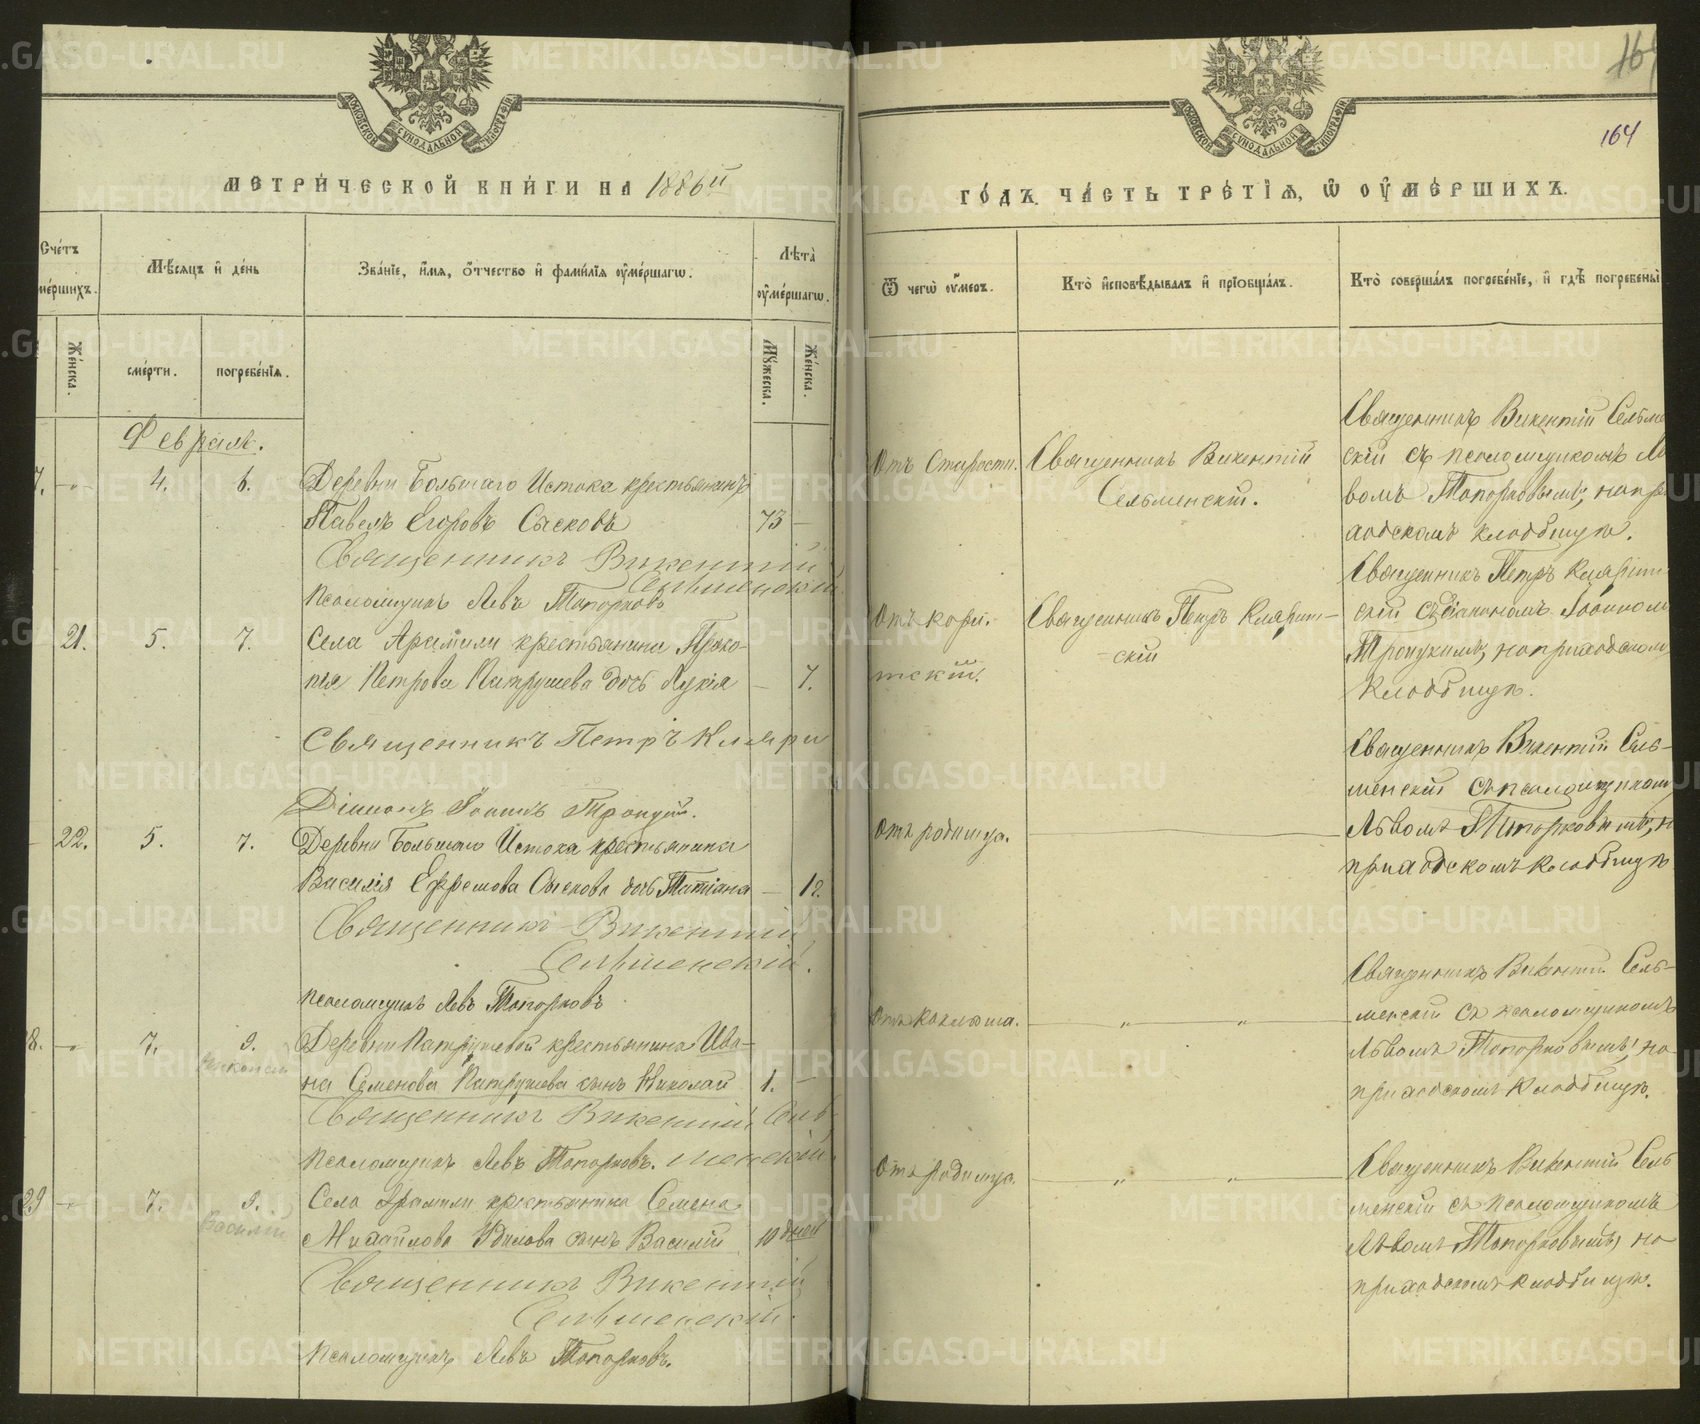 МЕТРИ́ЧЕСКОЙ КНИ́ГИ НА 1886й
ГО́ДЪ. ЧА́СТЬ ТРЕ́ТІѦ, Ѽ ОУ҆МЕ́РШИХЪ.
164
Сче́тъ
ме́ршихъ.
Мѣ́сяцъ и҆ де́нь
Зва́нїе, и҆́мя, ѻ҆́тчество и҆ фамилія оу҆ме́ршагѡ.
Лѣ́та̀
оу҆ме́ршагѡ.
Ѿ чегѡ̀ оу҆́меръ.
Кто̀ и҆сповѣ́дывалъ и҆ прїобща́лъ.
Кто̀ соверша́лъ погребе́нїе, и҆ гдѣ̀ погребены̀
Же́нска.
сме́рти.
погребе́нїя.
Мꙋ́жеска.
Же́нска.
Февраль.
7. — 4. 6. Деревни Большаго Истока крестьянинъ
Павелъ Егоровъ Сысковъ 73 —
Священникъ Викентій
Сельменскій.
Псаломщикъ Левъ Топорковъ
Отъ старости.
Священникъ Викентій
Сельменскій.
Священникъ Викентій Сельме
скій съ псаломщикомъ Ль
вомъ Топорковымъ, на при
ходскомъ кладбищѣ.
21. 5. 7. Села Арамили крестьянина Проко-
пія Петрова Патрушева дочь Лукія — 7.
Священникъ Петръ Кляри
Діаконъ Іоаннъ Троицкій.
Отъ кори.
Священникъ Петръ Клярит-
скій
Священникъ Петръ Клярит
скій съ діакономъ Іоанном
Троицкимъ, на приходском
кладбищѣ.
22. 5. 7. Деревни Большаго Истока крестьянина
Василія Ефремова Сыскова дочь Татіана — 12.
Священникъ Викентій
Сельменскій.
Псаломщикъ Левъ Топорковъ
Отъ родимца.
Священникъ Викентій Сель-
менскій съ псаломщиком
Львомъ Топорковымъ, н
приходскомъ кладбищѣ
8. — 7. 9. Деревни Патрушевой крестьянина Ива-
на Семенова Патрушева сынъ Николай 1. —
Священникъ Викентій Сель
менскій
Псаломщикъ Левъ Топорковъ.
Отъ коклюша.
— „ — „ —
Священникъ Викентій Сель-
менскій съ псаломщикомъ
Львомъ Топорковымъ, на
приходскомъ кладбищѣ.
29 — 7. 9. Села Арамили крестьянина Семена
Василій
Михайлова сынъ Василій 10 дней
Священникъ Викентій
Сельменскій.
Псаломщикъ Левъ Топорковъ.
Отъ родимца.
— „ — „ —
Священникъ Викентій Сель
менскій съ псаломщикомъ
Львомъ Топорковымъ, на
приходскомъ кладбищѣ.
METRIKI.GASO-URAL.RU